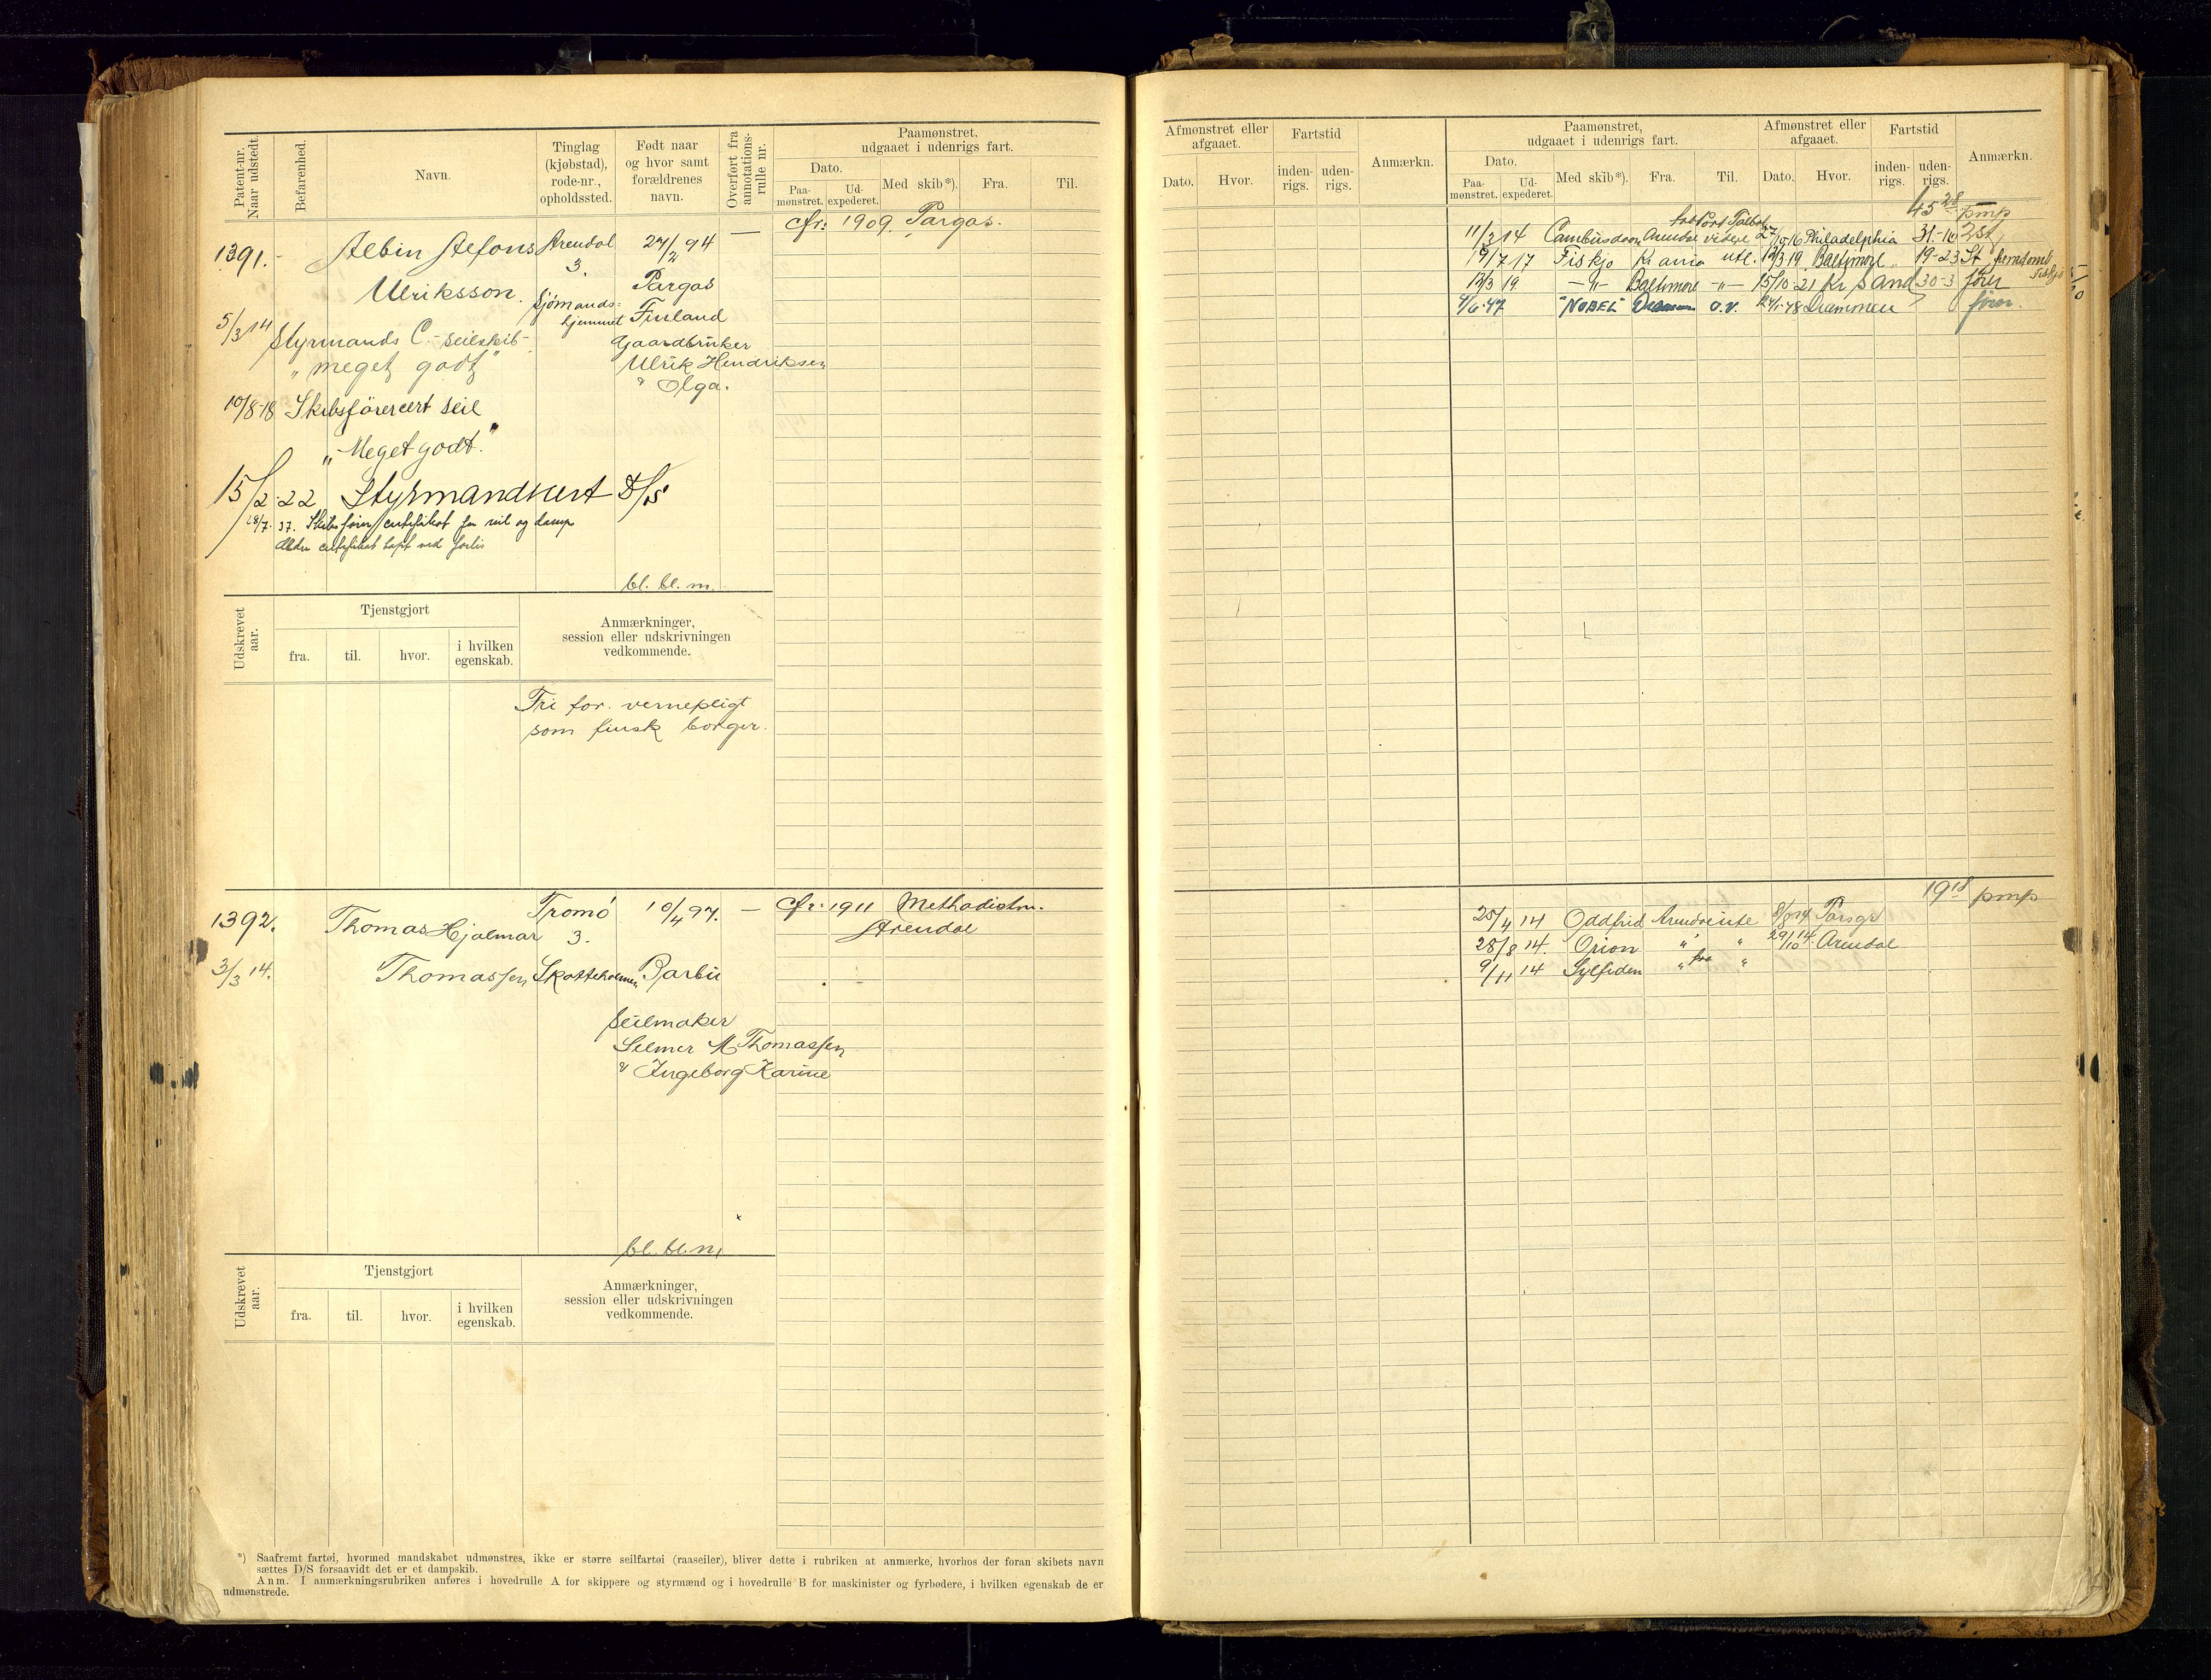 Patent-nr. Naar udstedt.
Befarenhed.
Navn.
Tinglag (kjøbstad), rode-nr., opholdssted.
Født naar og hvor samt forældrenes navn.
Overført fra annotations-rulle nr.
Paamønstret, udgaaet i udenrigs fart.
Dato.
Paa-mønstret.
Ud-expederet.
Med skib*).
Fra.
Til.
1391.
Albin Alfons
Arendal
27/2 94
—
Cfr: 1909. Pargas.
3.
Ulriksson.
Pargas
Sjömands=
hjemmet
Finland
5/3 14
Styrmands C.-seilskib-
Gaardbruker
"meget godt"
Ulrik Hendriksen
& Olga.
10/8-18 Skibsförercert seil
"Meget godt."
15/2-22 Styrmandscert D/S
28/7. 37. Skibsførercertifikat for seil og damp
Ældre certifikat tapt ved forlis
bl. bl. m.
Udskrevet aar.
Tjenstgjort
fra.
til.
hvor.
i hvilken egenskab.
Anmærkninger, session eller udskrivningen vedkommende.
Fri for vernepligt
som finsk borger.
1392.
Thomas Hjalmar
Tromö
3.
10/4 97.
—
Cfr: 1911 Methodistm.
Arendal
3/3 14.
Thomassen
Skotteholmen
Barbu
Seilmaker
Selmer M Thomassen
& Ingeborg Karine
bl. bl. m.
Udskrevet aar.
Tjenstgjort
fra.
til.
hvor.
i hvilken egenskab.
Anmærkninger, session eller udskrivningen vedkommende.
*) Saafremt fartøi, hvormed mandskabet udmønstres, ikke er større seilfartøi (raaseiler), bliver dette i rubriken at anmærke, hvorhos der foran skibets navn
sættes D/S forsaavidt det er et dampskib.
Anm. I anmærkningsrubriken anføres i hovedrulle A for skippere og styrmænd og i hovedrulle B for maskinister og fyrbødere, i hvilken egenskab de er
udmønstrede.
Afmønstret eller afgaaet.
Dato.
Hvor.
Fartstid
inden-rigs.
uden-rigs.
Anmærkn.
Paamønstret, udgaaet i udenrigs fart.
Dato.
Paa-mønstret.
Ud-expederet.
Med skib*).
Fra.
Til.
Afmønstret eller afgaaet.
Dato.
Hvor.
Fartstid
inden-rigs.
uden-rigs.
Anmærkn.
45 28 pmp
fra Port Talbot
11/3 14 Cambusdoon Arendal videre 27/10-16 Philadelphia 31.-10 2St
19/7 17 Fiskjo Kr ania utl. 12/3 19 Baltimore 19-23 St.
13/3 19 -"- Baltimore -"- 15/10-21 Kr sand 30-3 förer
4/6.47 "NOBEL" Drammen o.v. 24/1-48 Drammen förer.
19 18 pmp
25/4 14 Oddfrid Arendal 8/8 14 Porsgr
28/8 14. Orion " " 29/10 14 Arendal
9/11 14 Sylfiden " fra "